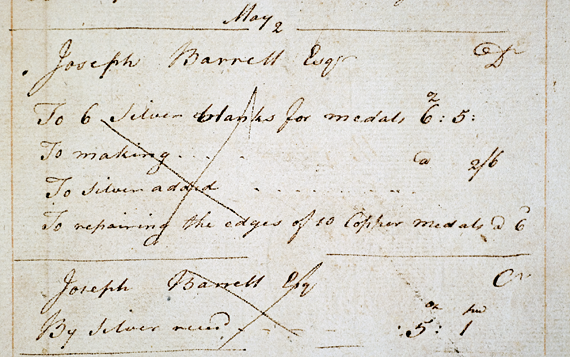 May 2
Joseph Barrell Esqr Dr
oz
To 6 Silver blanks for medals 6: 5:
To making @ 2/6
To Silver added
To repairing the edges of 10 Copper medals @ 6
Joseph Barrell Esqr Cr
oz pw
By Silver reced 5: 1